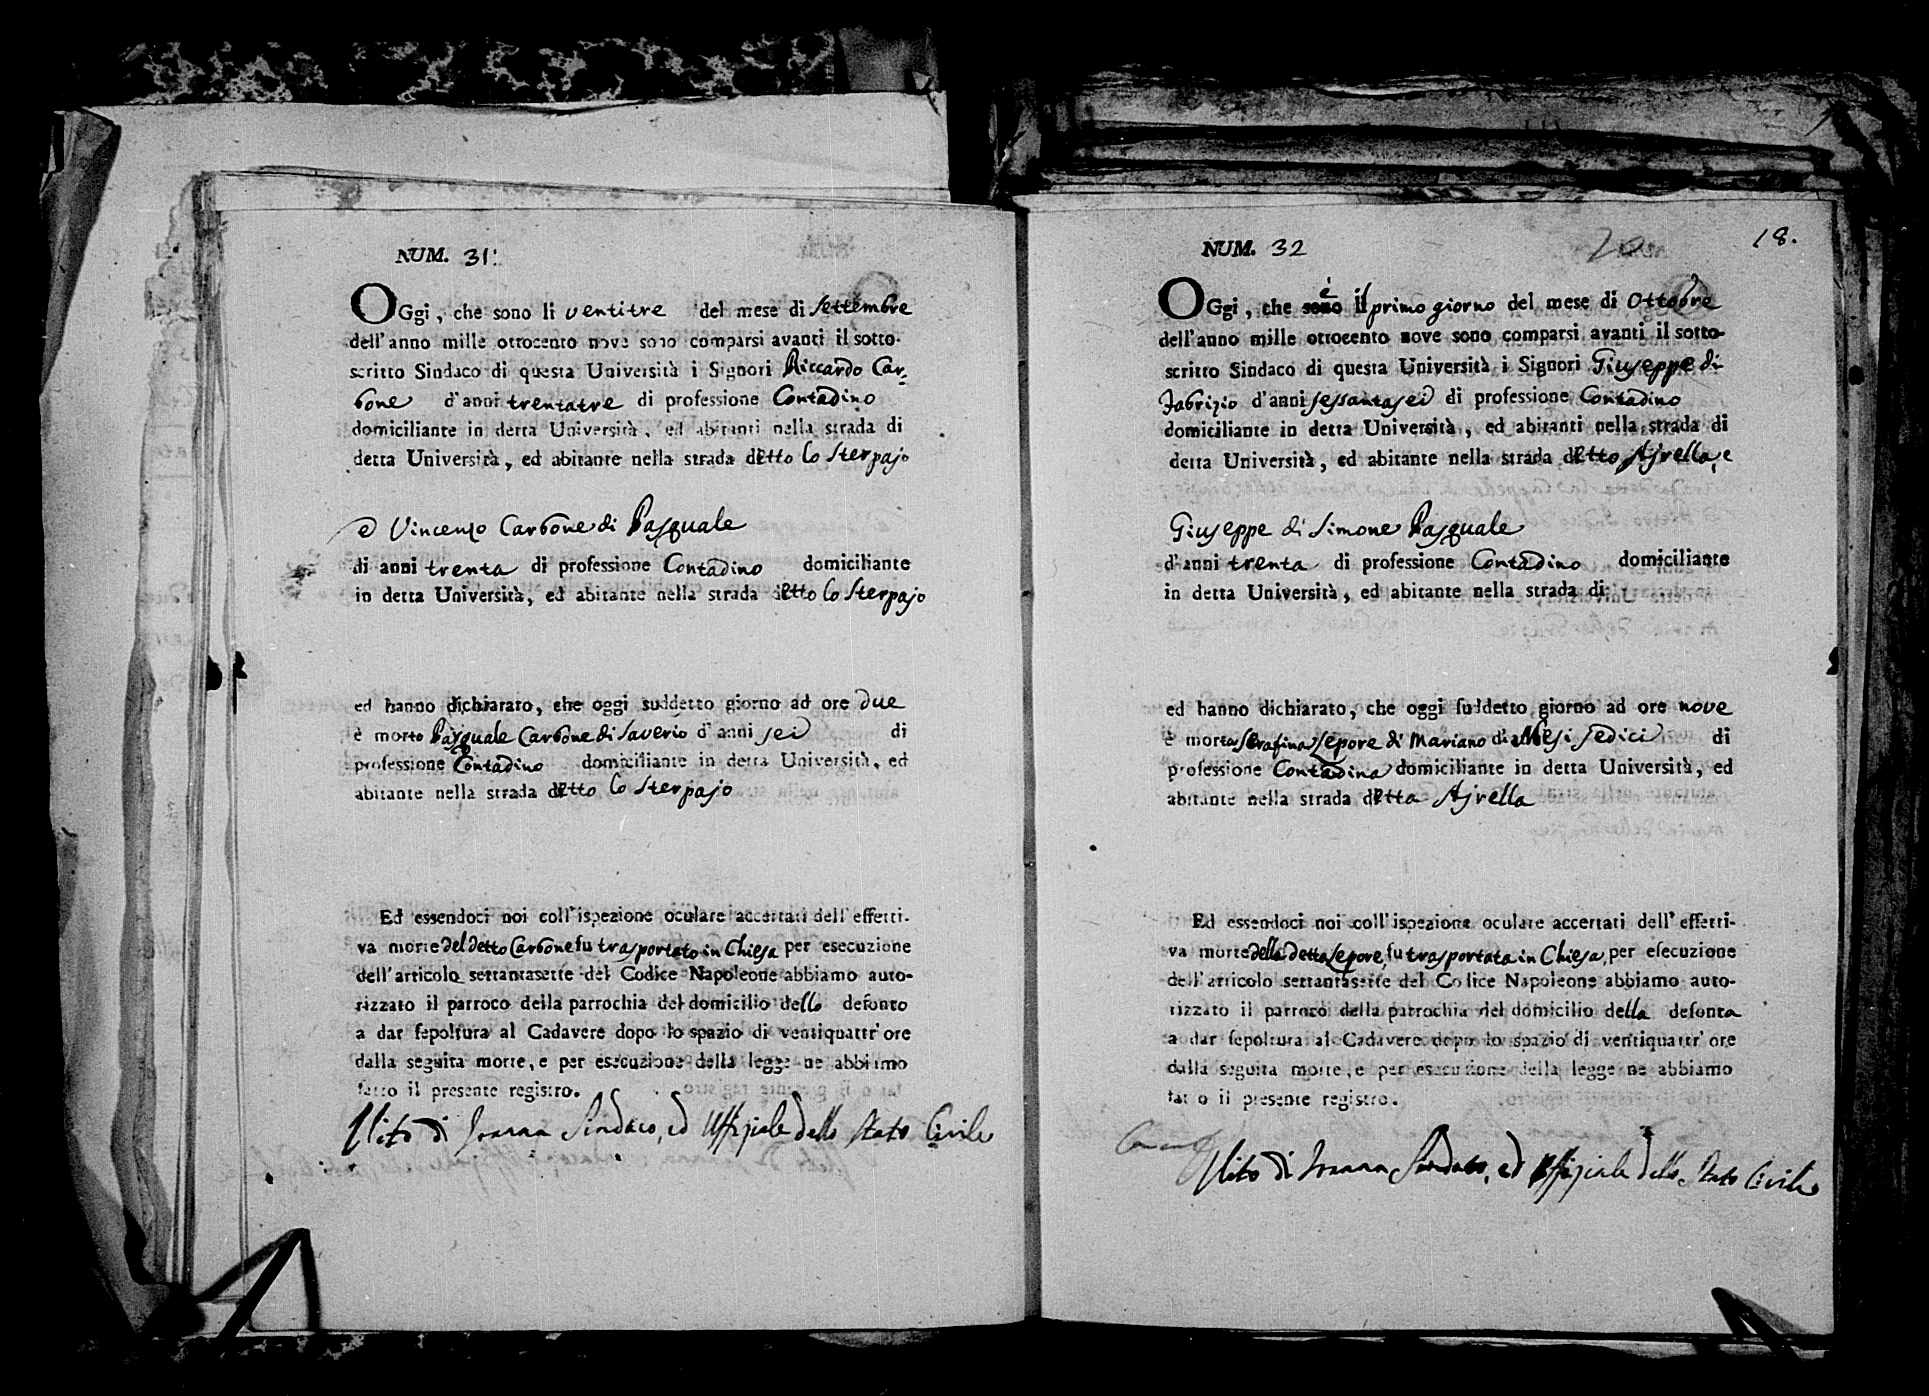 NUM. 31.
OGgi, che sono li ventitre del mese di Settembre
dell'anno mille ottocento nove sono comparsi avanti il sotto-
scritto Sindaco di questa Università i Signori Riccardo Car-
bone d'anni trentatre di professione Contadino
domiciliante in detta Università, ed abitanti nella strada di
detta Università, ed abitante nella strada detto lo Sterpajo
e Vincenzo Carbone di Pasquale
di anni trenta di professione Contadino domiciliante
in detta Università, ed abitante nella strada detto lo Sterpajo
ed hanno dichiarato, che oggi suddetto giorno ad ore due
è morto Pasquale Carbone di Saverio d'anni sei di
professione Contadino domiciliante in detta Università, ed
abitante nella strada detto lo Sterpajo
Ed essendoci noi coll'ispezione oculare accertati dell'effetti-
va morte del detto Carbone fu trasportato in Chiesa per esecuzione
dell'articolo settantasette del Codice Napoleone abbiamo auto-
rizzato il parroco della parrochia del domicilio dello defonto
a dar sepoltura al Cadavere dopo lo spazio di ventiquattr'ore
dalla seguita morte, e per esecuzione della legge ne abbiamo
fatto il presente registro.
Vito di Sindaco, ed Uffiziale dello Stato Civile
18.
NUM. 32
OGgi, che sono è il primo giorno del mese di Ottobre
dell'anno mille ottocento nove sono comparsi avanti il sotto-
scritto Sindaco di questa Università i Signori Giuseppe di
Fabrizio d'anni sessantasei di professione Contadino
domiciliante in detta Università, ed abitanti nella strada di
detta Università, ed abitante nella strada detto Ajrella, e
Giuseppe di Simone Pasquale
d'anni trenta di professione Contadino domiciliante
in detta Università, ed abitante nella strada di
ed hanno dichiarato, che oggi suddetto giorno ad ore nove
è morta Serafina Sepore di Mariano di Mesi sedici di
professione Contadina domiciliante in detta Università, ed
abitante nella strada detta Ajrella
Ed essendoci noi coll'ispezione oculare accertati dell'effetti-
va morte della detta Sepore, fu trasportata in Chiesa, per esecuzione
dell'articolo settantasette del Codice Napoleone abbiamo auto-
rizzato il parroco della parrochia del domicilio della defonta
a dar sepoltura al Cadavere dopo lo spazio di ventiquattr'ore
dalla seguita morte, e per esecuzione della legge ne abbiamo
fatto il presente registro.
Vito di Sindaco, ed Uffiziale dello Stato Civile